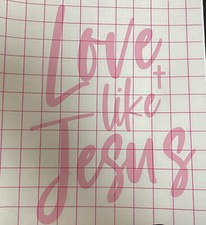 Love
like
Jesus